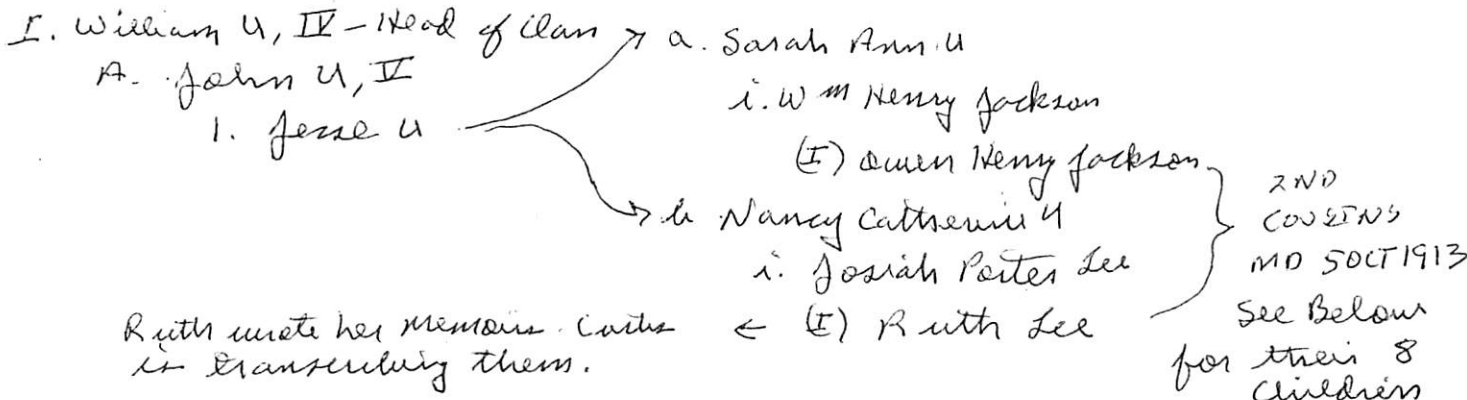 I. William U, IV - Head of Clan
A. John U, V
1. Jesse U
a. Sarah Ann U
i. Wm Henry Jackson
(I) Owen Henry Jackson
b Nancy Catherine U
i. Josiah Porter Lee
(I) Ruth Lee
Ruth wrote her memoirs.
is transcribing them.
2ND
COUSINS
MD 5OCT1913
See Below
for their 8
Children